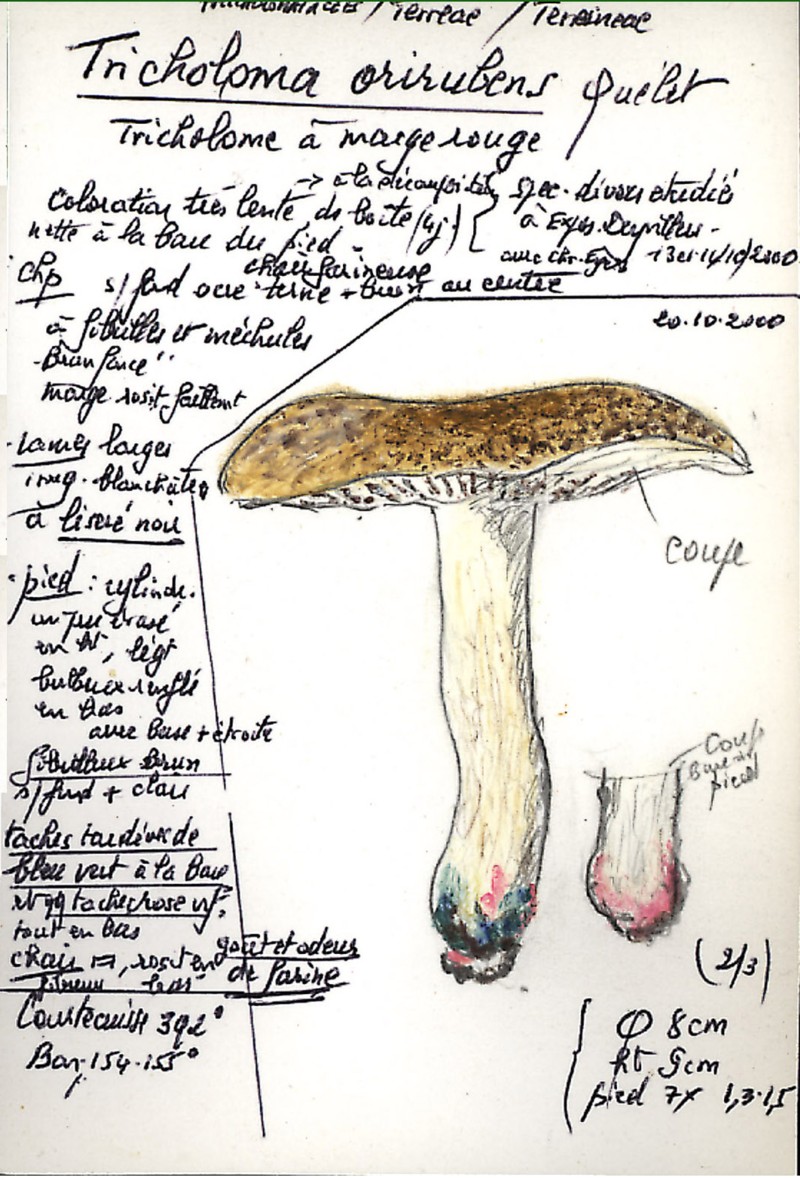 / Terreae / Terreineae
Tricholoma orirubens Quélet
Tricholome à marge rouge
→ à la
Coloration très lente, de boîte (4j)
nette à la base du pied -
spec. divers etudiés
à Expos.
avec Chr. 13 et 14/10/2000
chair farineuse
Chp s/ fond ocre terne + brun au centre
à fibrilles et méchules
Brun foncé
marge rosit
20.10.2000
- lames larges
irreg. blanchâtre
à liseré noir
coupe
- pied : cylindr.
un peu évasé
en ht, légt
bulbeux renflé
en bas
avec base + étroite
fibrilleux brun
s/ fond + clair
Coupe
Base du
pied
taches tardives de
bleu vert à la base
et qq taches rose vf
tout en bas
chair =, rosit en
bas
goût et odeur
de farine
(2/3)
Courtecuisse 392°
Bon 154-155°
φ 8cm
ht 9cm
pied 7x 1,3-1,5